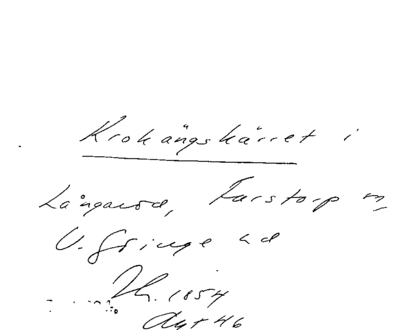 Krokängskärret i
Långaröd, Farstorp m,
V. Göinge hd
Th. 1854
Ант 46